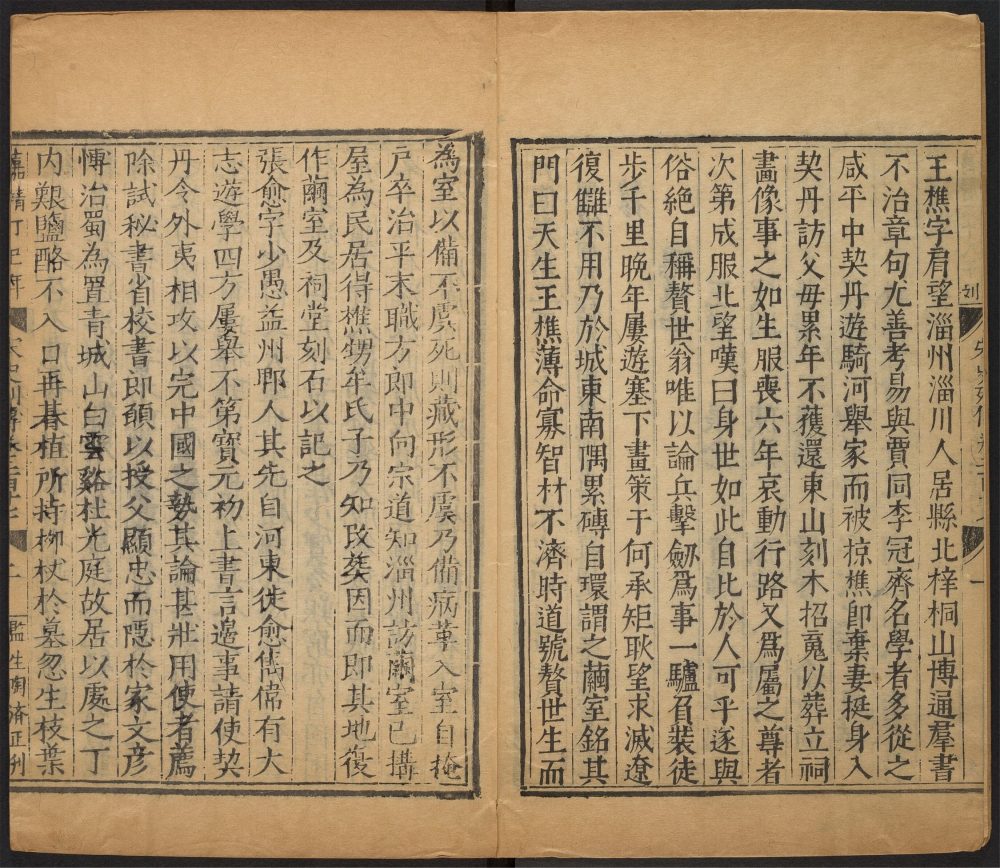 王樵字肩望淄州淄川人居縣北梓桐山博通羣書
不治章句尤善考易與賈同李冠齊名學者多從之
咸平中契丹遊騎河舉家而被掠樵即棄妻挺身入
契丹訪父毋累年不獲還東山刻木招䰟以葬立祠
畫像事之如生服喪六年哀動行路又爲屬之尊者
次第成服北望嘆曰身世如此自比於人可乎遂與
俗絶自稱贅世翁唯以論兵擊劒爲事一驢負裝徒
步千里晚年屢遊塞下畫策于何承矩耿望求滅遼
復讎不用乃於城東南隅累磚自環謂之繭室銘其
門曰天生王樵薄命寡智材不濟時道號贅世生而
刻
宋史列傳卷二百十七
一
為室以備不虞死則藏形不虞乃備病革入室自掩
户卒治平末職方郎中向宗道知淄州訪繭室已搆
屋為民居得樵甥牟氏子乃知改葬因而即其地復
作繭室及祠堂刻石以記之
張愈字少愚益州郫人其先自河東徙愈雋偉有大
志遊學四方屢舉不第寶元初上書言邊事請使契
丹令外夷相攻以完中國之勢其論甚壯用使者薦
除試秘書省校書郎願以授父顯忠而隱於家文彦
愽治蜀為置青城山白雲谿杜光庭故居以處之丁
内艱鹽酪不入口再朞植所持柳杖於墓忽生枝葉
嘉靖丁巳年
二
監生陶済正刊